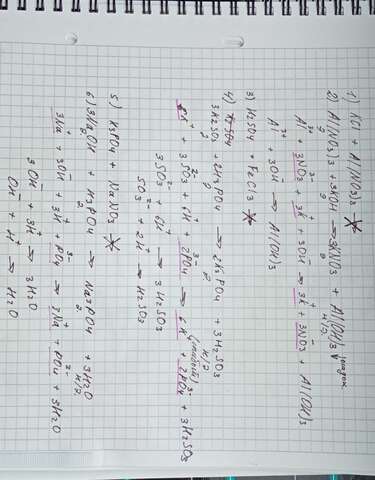 1) KCl + Al(NO3)3 ↛
2) Al(NO3)3 + 3KOH → 3KNO3 + Al(OH)3↓ осадок
р р р н/р
Al³⁺ + 3NO3⁻ + 3K⁺ + 3OH⁻ → 3K⁺ + 3NO3⁻ + Al(OH)3
Al³⁺ + 3OH⁻ → Al(OH)3
3) H2SO4 + FeCl3 ↛
4) K2SO4
3K2SO3 + 2H3PO4 → 2K3PO4 + 3H2SO3
р р р н/р
6K⁺ + 3SO3²⁻ + 6H⁺ + 2PO4³⁻ → 6K⁺ + 2PO4³⁻ + 3H2SO3
3SO3²⁻ + 6H⁺ → 3H2SO3
SO3²⁻ + 2H⁺ → H2SO3
5) K3PO4 + NaNO3 ↛
6) 3NaOH + H3PO4 → Na3PO4 + 3H2O
р р р н/р
3Na⁺ + 3OH⁻ + 3H⁺ + PO4³⁻ → 3Na⁺ + PO4³⁻ + 3H2O
3OH⁻ + 3H⁺ → 3H2O
OH⁻ + H⁺ → H2O